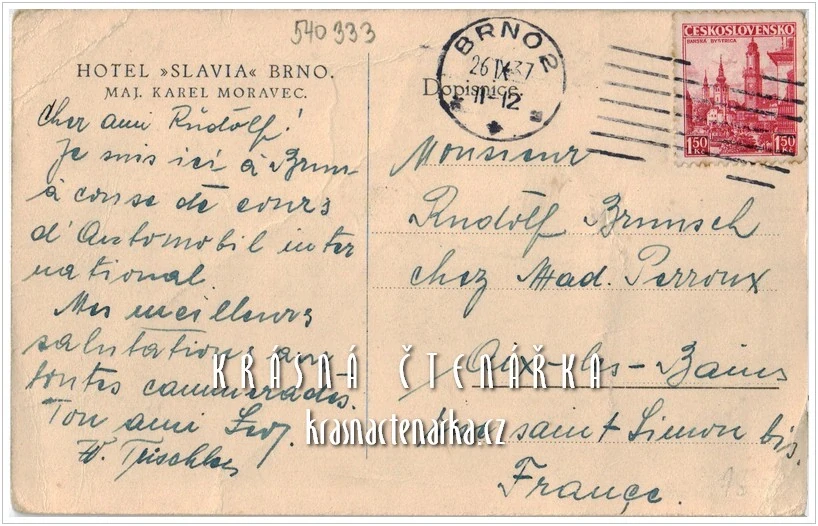 540 333
HOTEL »SLAVIA« BRNO.
MAJ. KAREL MORAVEC.
Cher ami Rudolf!
Je suis ici à Brun
à couse de cours
d'Automobil inter
national.
Mes meilleurs
salutations au
toutes cammerades.
Ton ami
BRNO 2
26 IX 37
11-12
Dopisnice.
ČESKOSLOVENSKO
BANSKÁ BYSTRICA
1.50 Kč 1.50
Monsieur
Rudolf Brunsch
chez Mad. Perroux
Aix-les-Bains
saint Simon bis.
France.
KRÁSNÁ ČTENÁŘKA
krasnactenarka.cz